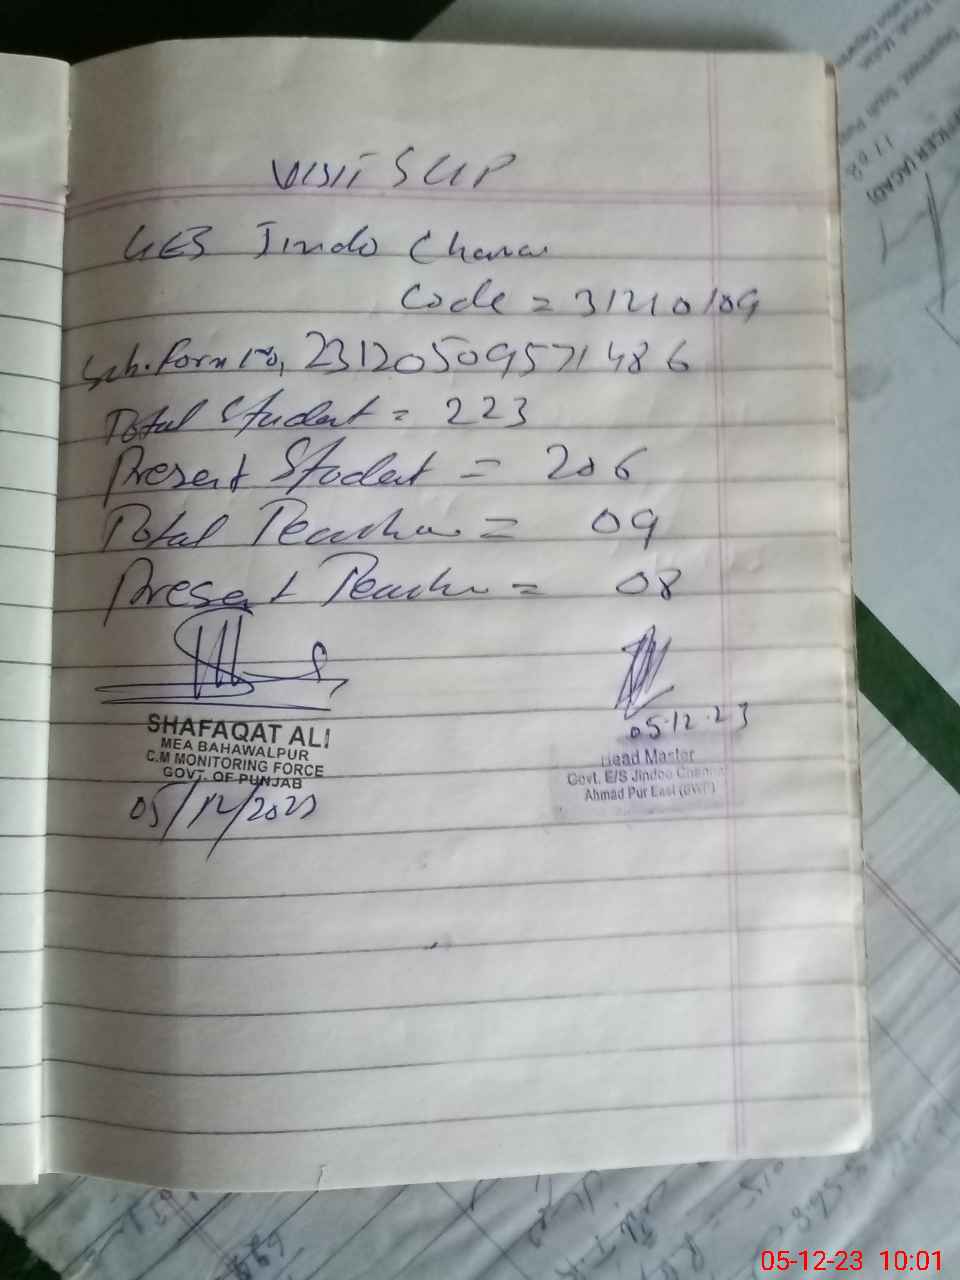 VISIT SLIP
GES Jindo Channar
Code = 31210109
Sch. Form No, 23120509571486
Total Student = 223
Present Student = 206
Total Teacher = 09
Present Teacher = 08
SHAFAQAT ALI
MEA BAHAWALPUR
C.M MONITORING FORCE
GOVT. OF PUNJAB
05/12/2023
05.12.23
Head Master
Govt. E/S Jindoo Channar
Ahmad Pur East (BWP)
OFFICER (ACAD)
05-12-23 10:01